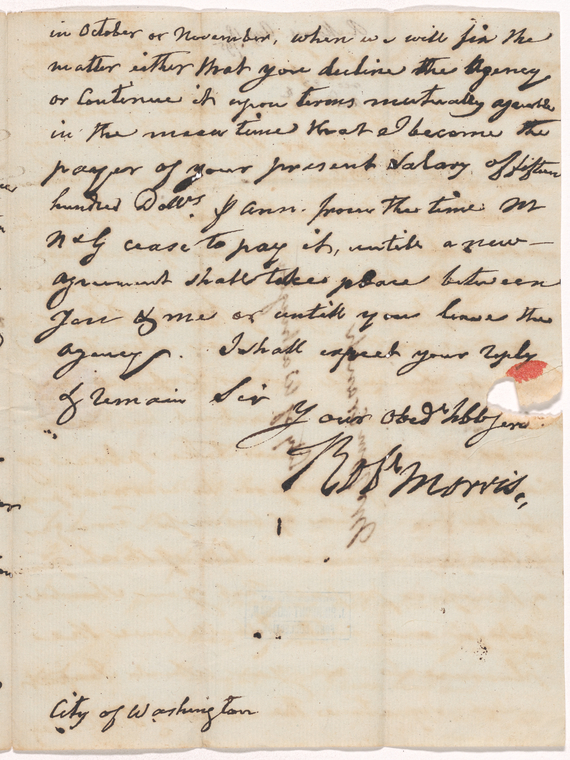 in October or November, when we will fix the
matter either that you decline the Agency
or Continue it upon terms mutually agreeable
in the mean time that I become the
payer of your present Salary of fifteen
hundred Dolls ⅌ ann. from the time Mr
N & G cease to pay it, untill a new—
agreement shall take place between
you & me or untill you leave the
agency. I shall expect your reply
& remain Sir
Your Obedt hble Serv
Robt Morris
City of Washington